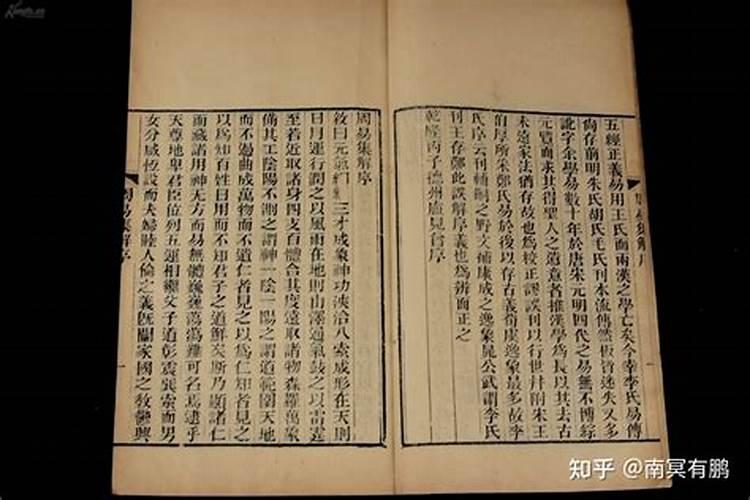 五經正義易用王氏而兩漢之學亡矣今幸李氏易傳
尚存前明朱氏胡氏毛氏刊本流傳然板皆迷失又多
訛字余學易數十年於唐宋元明四代之易無不博綜
元覽而求其得聖人之遺意者推漢學為長以其去古
未遠家法猶存故也為校正謬誤刊以行世并附宋王
伯厚所采鄭氏易於後以存古義荀虞逸象最多故李
氏序云刊輔嗣之野文補康成之逸象晁公武謂李氏
刊王存鄭此誤解序義也為辨而正之
乾隆丙子德州盧見曾序
周易集解序
敘曰元氣絪縕三才成象神功浹洽八索成形在天則
日月運行潤之以風雨在地則山澤通氣鼓之以雷霆
至若近取諸身四支百體合其度遠取諸物森羅萬象
備其工陰陽不測之謂神一陰一陽之謂道範圍天地
而不過曲成萬物而不遺仁者見之以為仁知者見之
以為知百姓日用而不知君子之道鮮矣斯乃顯諸仁
而藏諸用神无方而易無體巍巍蕩蕩難可名焉逮乎
天尊地卑君臣位列五運相繼父子道彰震巽索而男
女分咸恆設而夫婦睦人倫之義既闡家國之教鬱興
周易集解序
知乎 @南冥有鹏